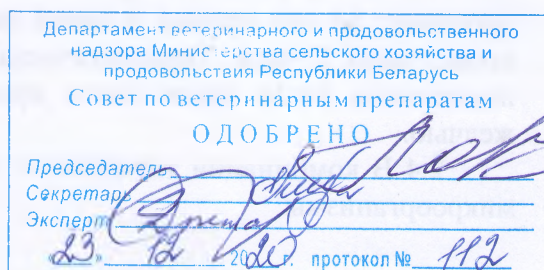 Департамент ветеринарного и продовольственного
надзора Министерства сельского хозяйства и
продовольствия Республики Беларусь
Совет по ветеринарным препаратам
ОДОБРЕНО
Председатель
Секретарь
Эксперт
«23» 12 2020 г. протокол № 112